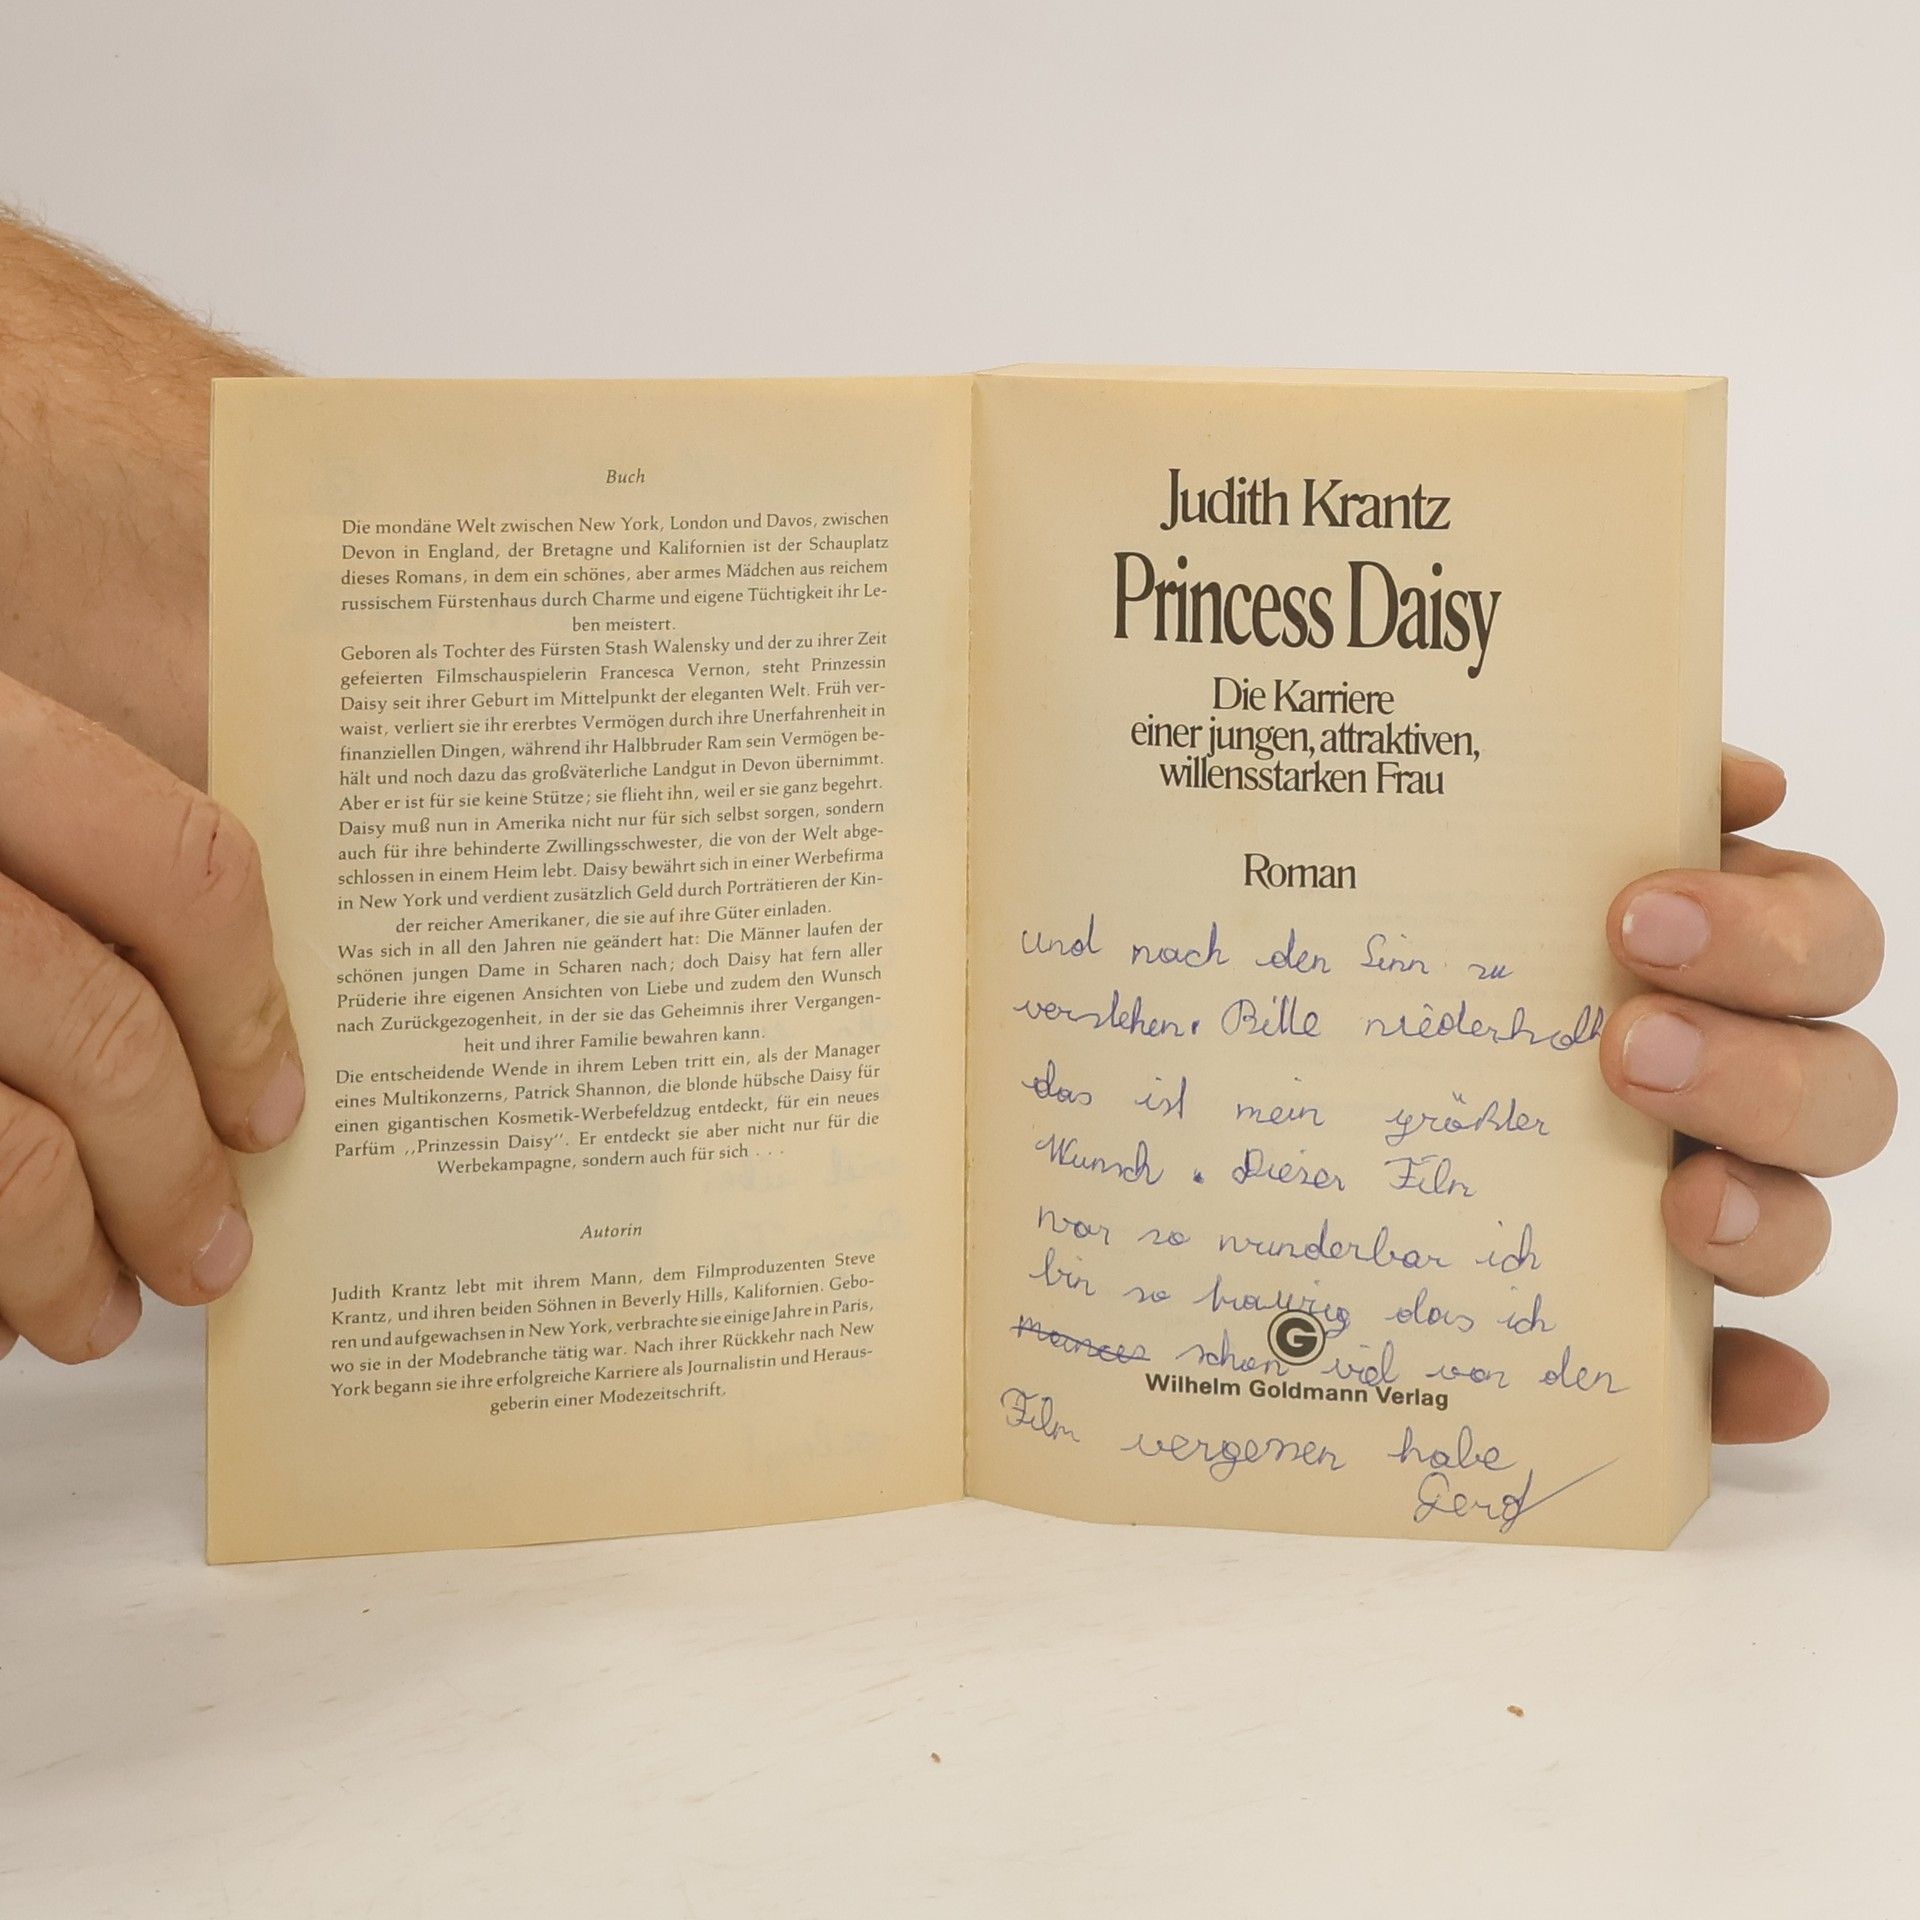 Buch
Die mondäne Welt zwischen New York, London und Davos, zwischen
Devon in England, der Bretagne und Kalifornien ist der Schauplatz
dieses Romans, in dem ein schönes, aber armes Mädchen aus reichem
russischem Fürstenhaus durch Charme und eigene Tüchtigkeit ihr Le-
ben meistert.
Geboren als Tochter des Fürsten Stash Walensky und der zu ihrer Zeit
gefeierten Filmschauspielerin Francesca Vernon, steht Prinzessin
Daisy seit ihrer Geburt im Mittelpunkt der eleganten Welt. Früh ver-
waist, verliert sie ihr ererbtes Vermögen durch ihre Unerfahrenheit in
finanziellen Dingen, während ihr Halbbruder Ram sein Vermögen be-
hält und noch dazu das großväterliche Landgut in Devon übernimmt.
Aber er ist für sie keine Stütze; sie flieht ihn, weil er sie ganz begehrt.
Daisy muß nun in Amerika nicht nur für sich selbst sorgen, sondern
auch für ihre behinderte Zwillingsschwester, die von der Welt abge-
schlossen in einem Heim lebt. Daisy bewährt sich in einer Werbefirma
in New York und verdient zusätzlich Geld durch Porträtieren der Kin-
der reicher Amerikaner, die sie auf ihre Güter einladen.
Was sich in all den Jahren nie geändert hat: Die Männer laufen der
schönen jungen Dame in Scharen nach; doch Daisy hat fern aller
Prüderie ihre eigenen Ansichten von Liebe und zudem den Wunsch
nach Zurückgezogenheit, in der sie das Geheimnis ihrer Vergangen-
heit und ihrer Familie bewahren kann.
Die entscheidende Wende in ihrem Leben tritt ein, als der Manager
eines Multikonzerns, Patrick Shannon, die blonde hübsche Daisy für
einen gigantischen Kosmetik-Werbefeldzug entdeckt, für ein neues
Parfüm „Prinzessin Daisy“. Er entdeckt sie aber nicht nur für die
Werbekampagne, sondern auch für sich . . .
Autorin
Judith Krantz lebt mit ihrem Mann, dem Filmproduzenten Steve
Krantz, und ihren beiden Söhnen in Beverly Hills, Kalifornien. Gebo-
ren und aufgewachsen in New York, verbrachte sie einige Jahre in Paris,
wo sie in der Modebranche tätig war. Nach ihrer Rückkehr nach New
York begann sie ihre erfolgreiche Karriere als Journalistin und Heraus-
geberin einer Modezeitschrift.
Judith Krantz
Princess Daisy
Die Karriere
einer jungen, attraktiven,
willensstarken Frau
Roman
und nach den Sinn zu
verstehen. Bitte wiederholt
das ist mein größter
Wunsch. Dieser Film
war so wunderbar ich
bin so traurig das ich
schon viel von den
Film vergessen habe
Gerd
G
Wilhelm Goldmann Verlag